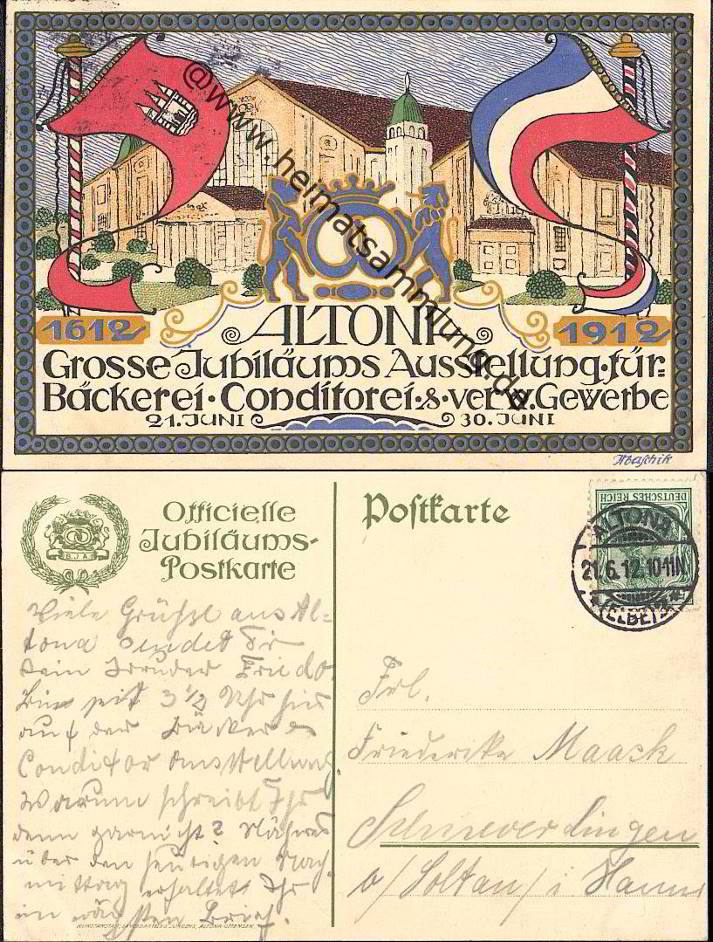 @www.heimatsammlung.de
1612
ALTONA
1912
Grosse Jubiläums Ausstellung·für·
Bäckerei·Conditorei·&·verw.Gewerbe
21.JUNI
30.JUNI
Officielle
Jubiläums-
Postkarte
B.J.A.
Postkarte
DEUTSCHES REICH
ALTONA
21.6.12.10-11N.
(ELBE)
Viele Grüße aus Al=
tona sendet Dir
Dein Bruder Friedo.
Bin seit 3½ Uhr hier
auf der Bäcker &
Conditor Ausstellung.
Warum schreibt Ihr
denn garnicht? Nähres
über den heutigen Nach
mittag erhaltet Ihr
im nächsten Brief.
Frl.
Friederike Maack
Schneverdingen
b/Soltau/i Hann